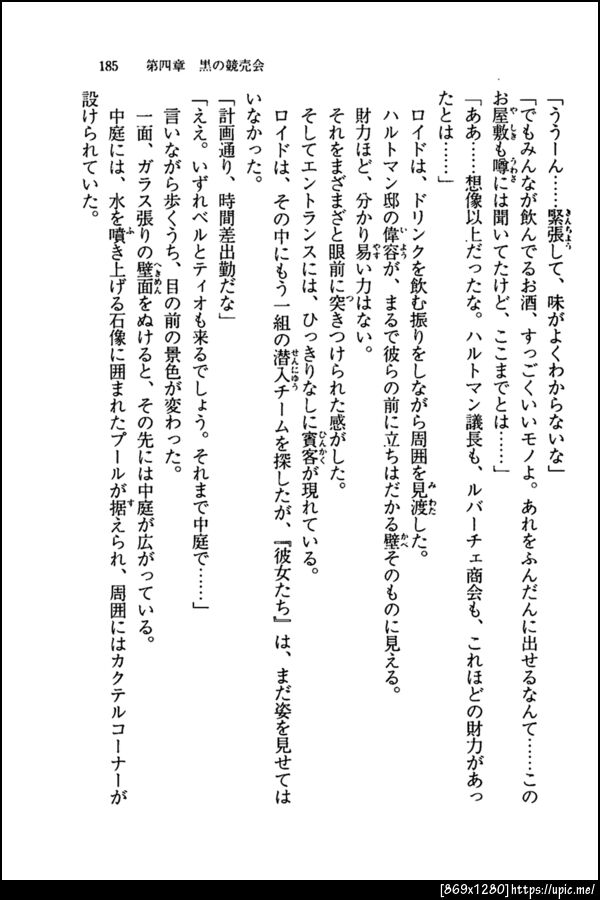 185　第四章　黒の競売会
「ううーん……緊張して、味がよくわからないな」
「でもみんなが飲んでるお酒、すっごくいいモノよ。あれをふんだんに出せるなんて……この
お屋敷も噂には聞いてたけど、ここまでとは……」
「ああ……想像以上だったな。ハルトマン議長も、ルバーチェ商会も、これほどの財力があっ
たとは……」
ロイドは、ドリンクを飲む振りをしながら周囲を見渡した。
ハルトマン邸の偉容が、まるで彼らの前に立ちはだかる壁そのものに見える。
財力ほど、分かり易い力はない。
それをまざまざと眼前に突きつけられた感がした。
そしてエントランスには、ひっきりなしに賓客が現れている。
ロイドは、その中にもう一組の潜入チームを探したが、『彼女たち』は、まだ姿を見せては
いなかった。
「計画通り、時間差出勤だな」
「ええ。いずれベルとティオも来るでしょう。それまで中庭で……」
言いながら歩くうち、目の前の景色が変わった。
一面、ガラス張りの壁面をぬけると、その先には中庭が広がっている。
中庭には、水を噴き上げる石像に囲まれたプールが据えられ、周囲にはカクテルコーナーが
設けられていた。
[869x1280]https://upic.me/